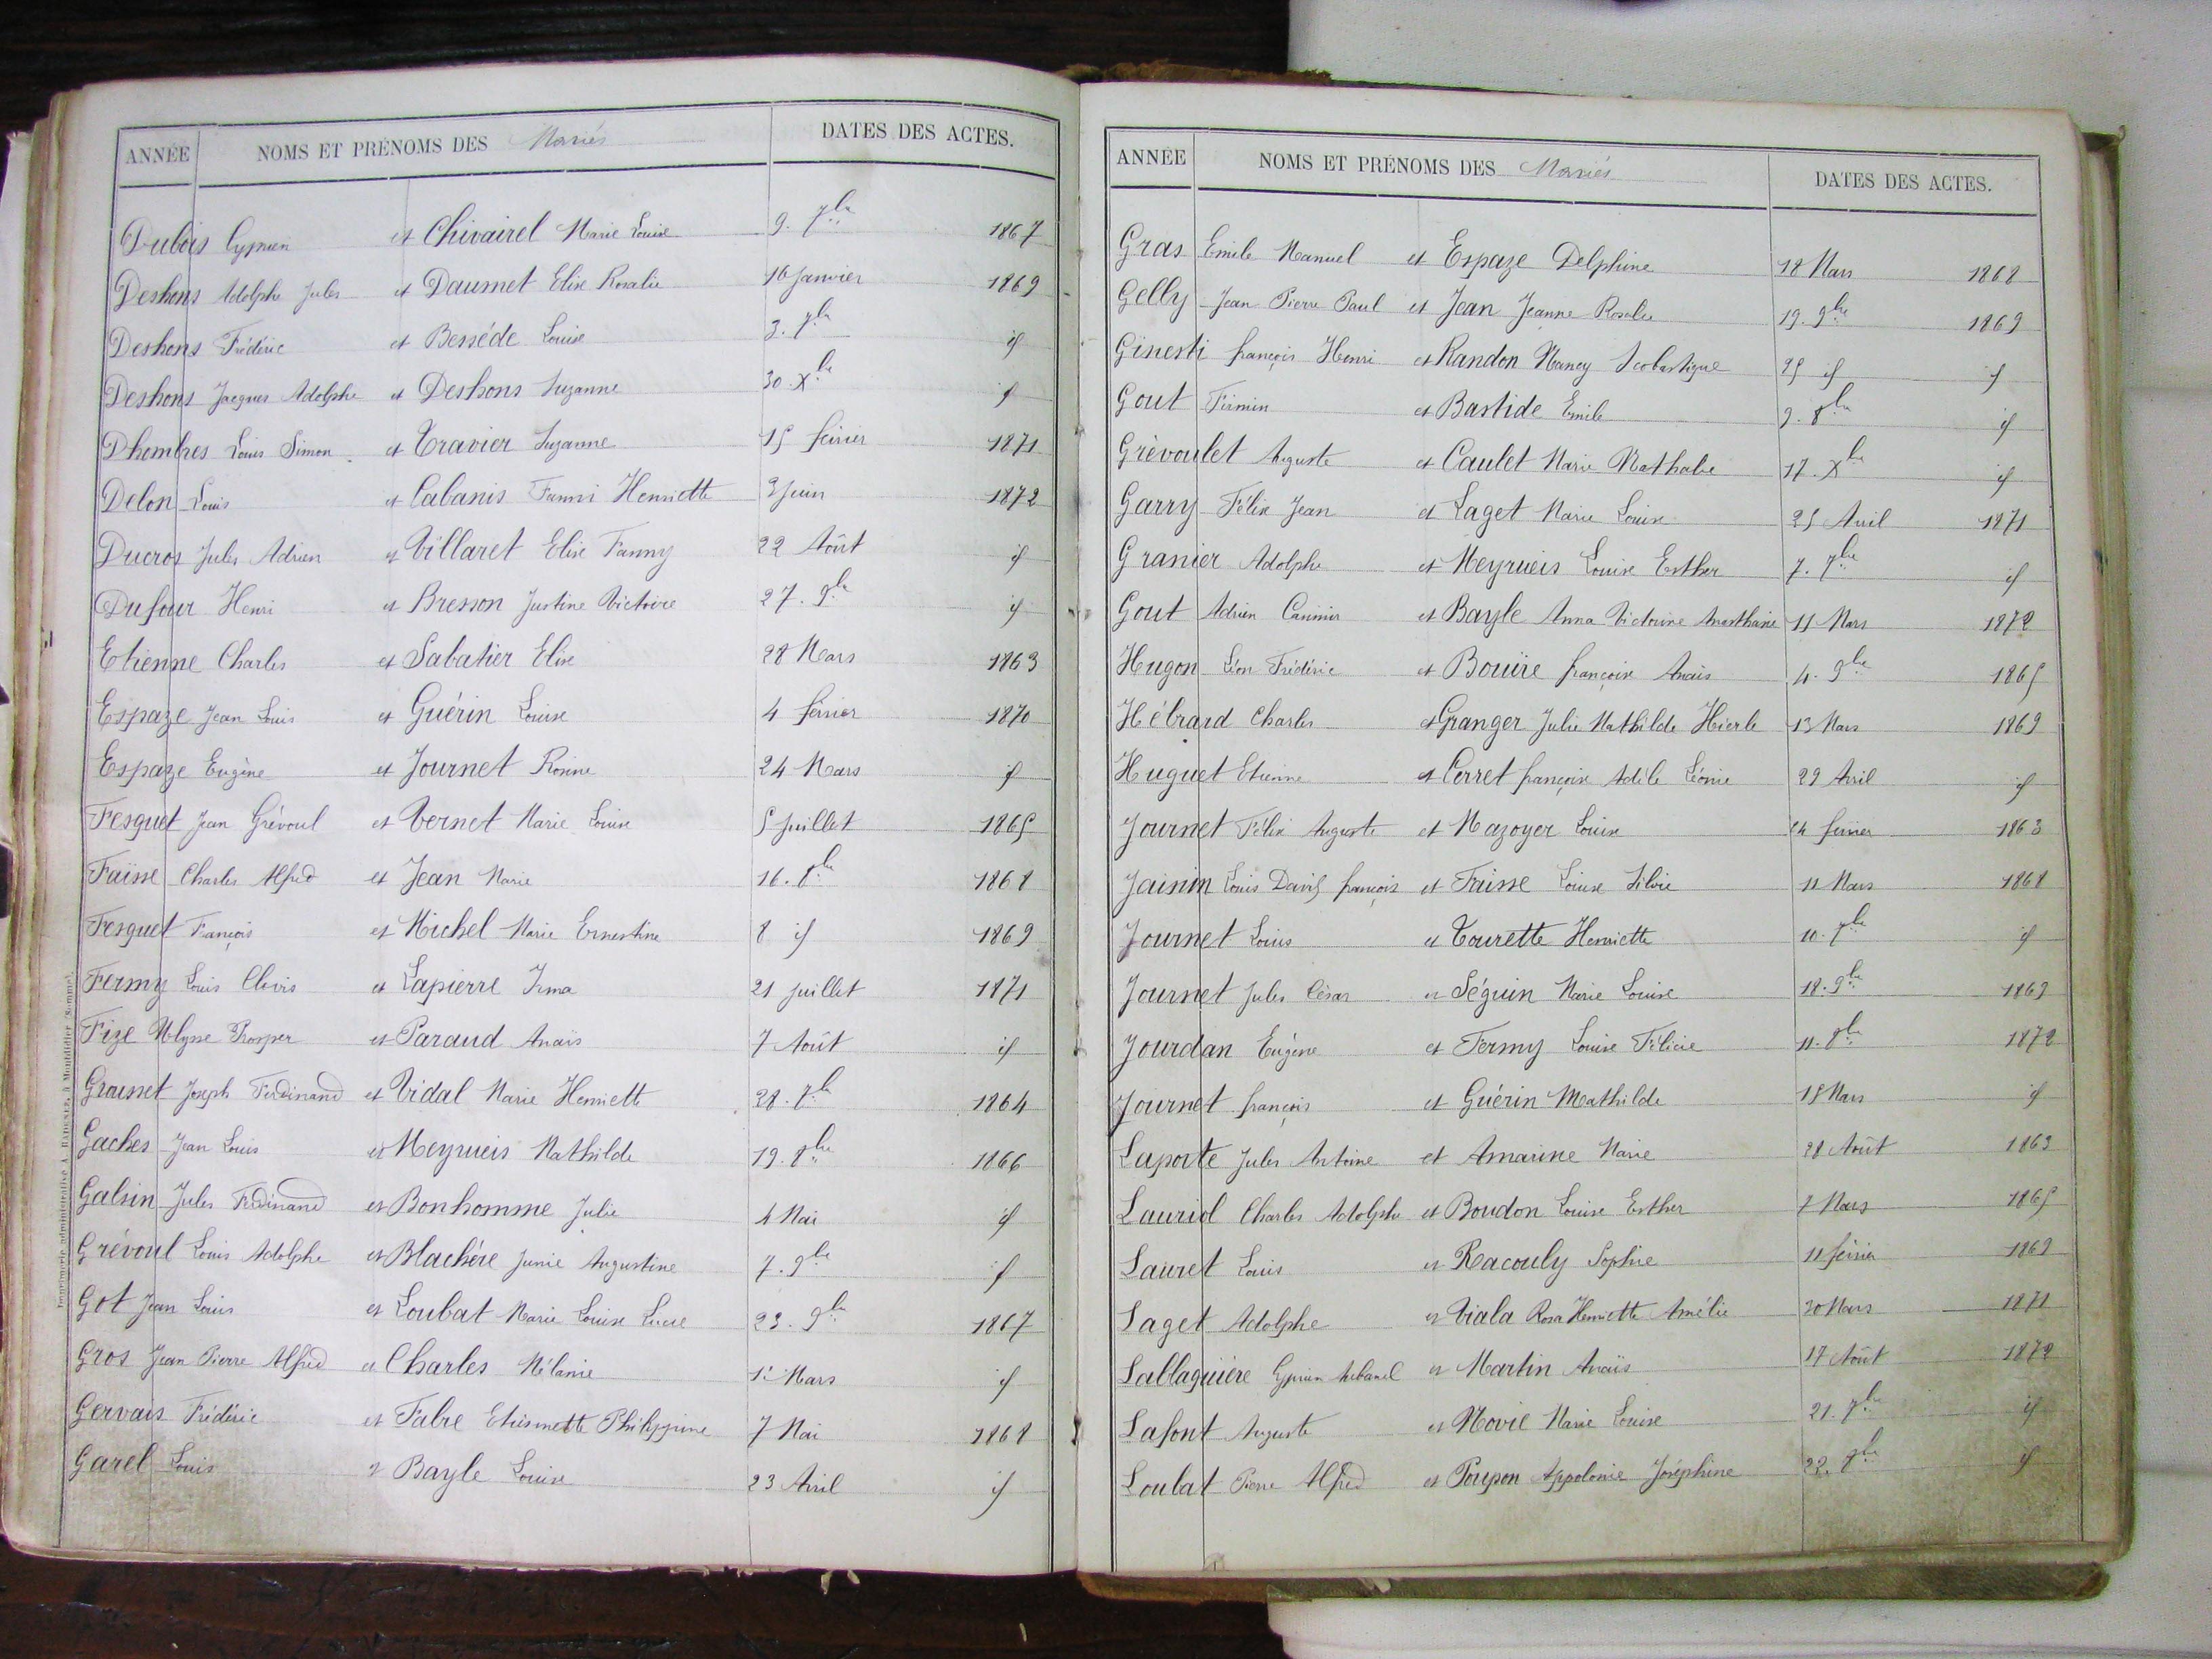 ANNÉE NOMS ET PRÉNOMS DES Mariés DATES DES ACTES.
Dubois Cyprien et Chivairel Marie Louise 9. 7bre 1867
Deshons Adolphe Jules et Daumet Elise Rosalie 16 Janvier 1869
Deshons Frédéric et Besséde Louise 3. 7bre id
Deshons Jacques Adolphe et Deshons Suzanne 30. Xbre id
Dhombres Louis Simon et Travier Suzanne 15 février 1871
Delon Louis et Cabanis Fanni Henriette 3 Juin 1872
Ducros Jules Adrien et Villaret Elise Fanny 22 Août id
Dufour Henri et Bresson Justine Victoire 27. 9bre id
Etienne Charles et Sabatier Elise 28 Mars 1863
Espaze Jean Louis et Guérin Louise 4 février 1870
Espaze Eugène et Journet Rosine 24 Mars id
Fesquet Jean Grévoul et Vernet Marie Louise 5 Juillet 1865
Faïsse Charles Alfred et Jean Marie 16. 8bre 1868
Fesquet François et Michel Marie Ernestine 8 id 1869
Fermy Louis Clovis et Lapierre Irma 21 Juillet 1871
Fize Ulysse Prosper et Paraud Anaïs 7 Août id
Grousset Joseph Ferdinand et Vidal Marie Henriette 28. 7bre 1864
Gaches Jean Louis et Meyrueis Mathilde 19. 8bre 1866
Galsin Jules Ferdinand et Bonhomme Julie 4 Mai id
Grévoul Louis Adolphe et Blachère Junie Augustine 7. 9bre id
Got Jean Louis et Loubat Marie Louise Lucie 23. 9bre 1867
Gros Jean Pierre Alfred et Charles Mélanie 1er Mars id
Gervais Frédéric et Fabre Etiennette Philippine 7 Mai 1868
Garel Louis et Bayle Louise 23 Avril id
ANNÉE NOMS ET PRÉNOMS DES Mariés DATES DES ACTES.
Gras Emile Manuel et Espaze Delphine 18 Mars 1868
Gelly Jean Pierre Paul et Jean Jeanne Rosalie 19. 9bre 1869
Ginesti françois Henri et Randon Nancy Scolastique 25 id id
Gout Firmin et Bastide Emilie 9. 8bre id
Grévoulet Auguste et Caulet Marie Nathalie 17. Xbre id
Garry Félix Jean et Laget Marie Louise 25 Avril 1871
Granier Adolphe et Meyrueis Louise Esther 7. 7bre id
Gout Adrien Casimir et Bayle Anna Victorine Anasthasie 11 Mars 1872
Hugon Léon Frédéric et Bouïre françoise Anaïs 4. 9bre 1865
Hébrard Charles et Granger Julie Mathilde Hierle 13 Mars 1869
Huguet Etienne et Cerret françoise Adèle Léonie 29 Avril id
Journet Félix Auguste et Mazoyer Louise 24 février 1863
Jainin Louis David françois et Faisse Louise Silvie 11 Mars 1868
Journet Louis et Tourette Henriette 10. 7bre id
Journet Jules César et Séguin Marie Louise 18. 9bre 1869
Jourdan Eugène et Fermy Louise Félicie 11. 8bre 1872
Journet françois et Guérin Mathilde 15 Mars id
Laporte Jules Antoine et Amarine Marie 28 Août 1863
Lauriol Charles Adolphe et Boudon Louise Esther 7 Mars 1865
Lauret Louis et Racouly Sophie 11 février 1869
Laget Adolphe et Viala Rosa Henriette Amélie 30 Mars 1871
Lablaquière Cyprien et Martin Anaïs 17 Août 1872
Lafont Auguste et Movie Marie Louise 21. 7bre id
Loubat Pierre Alfred et Poupon Appolonie Joséphine 22. 9bre id